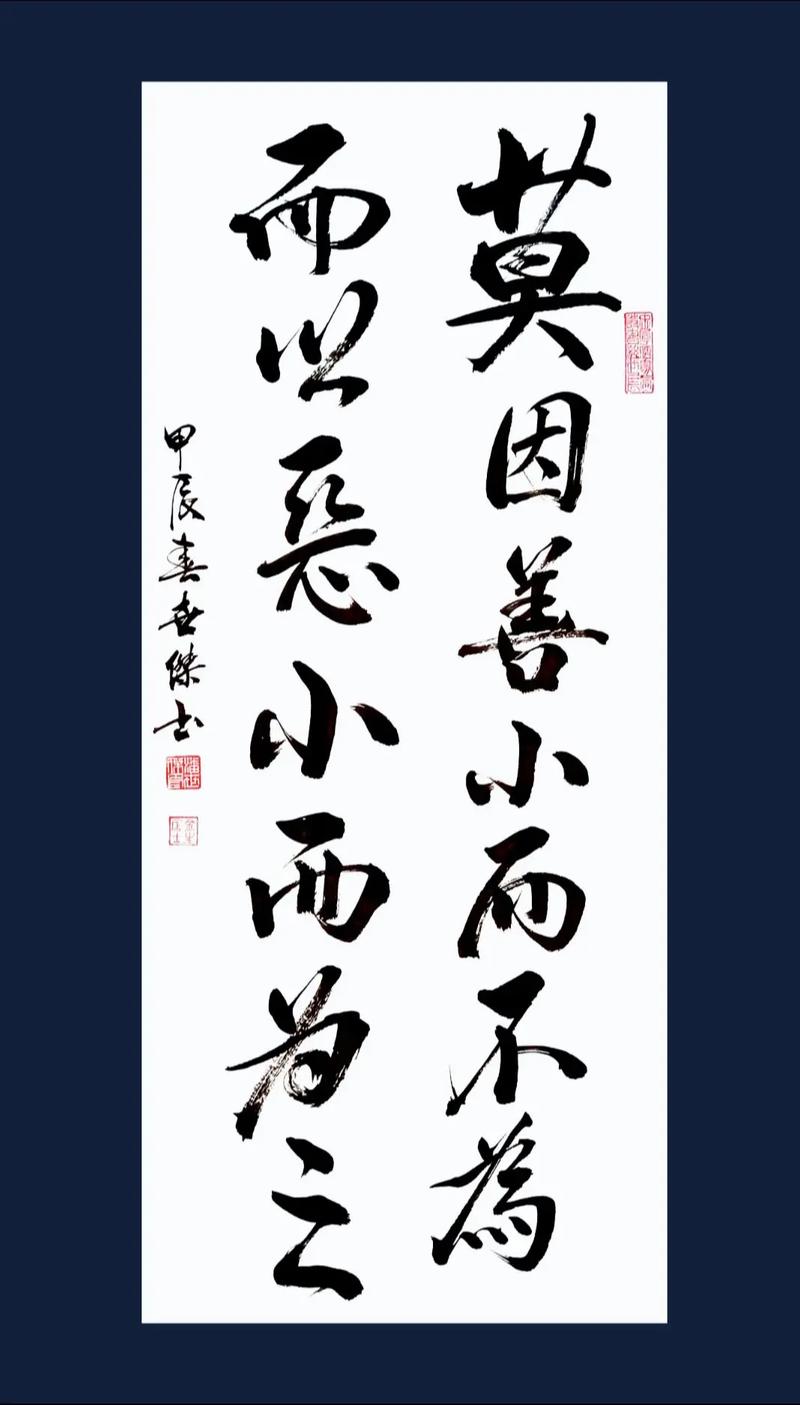 莫因善小而不為
而以惡小而为之
甲辰春世傑书